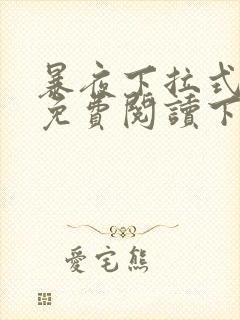 暴夜下拉式
免費閱讀下
愛宅熊